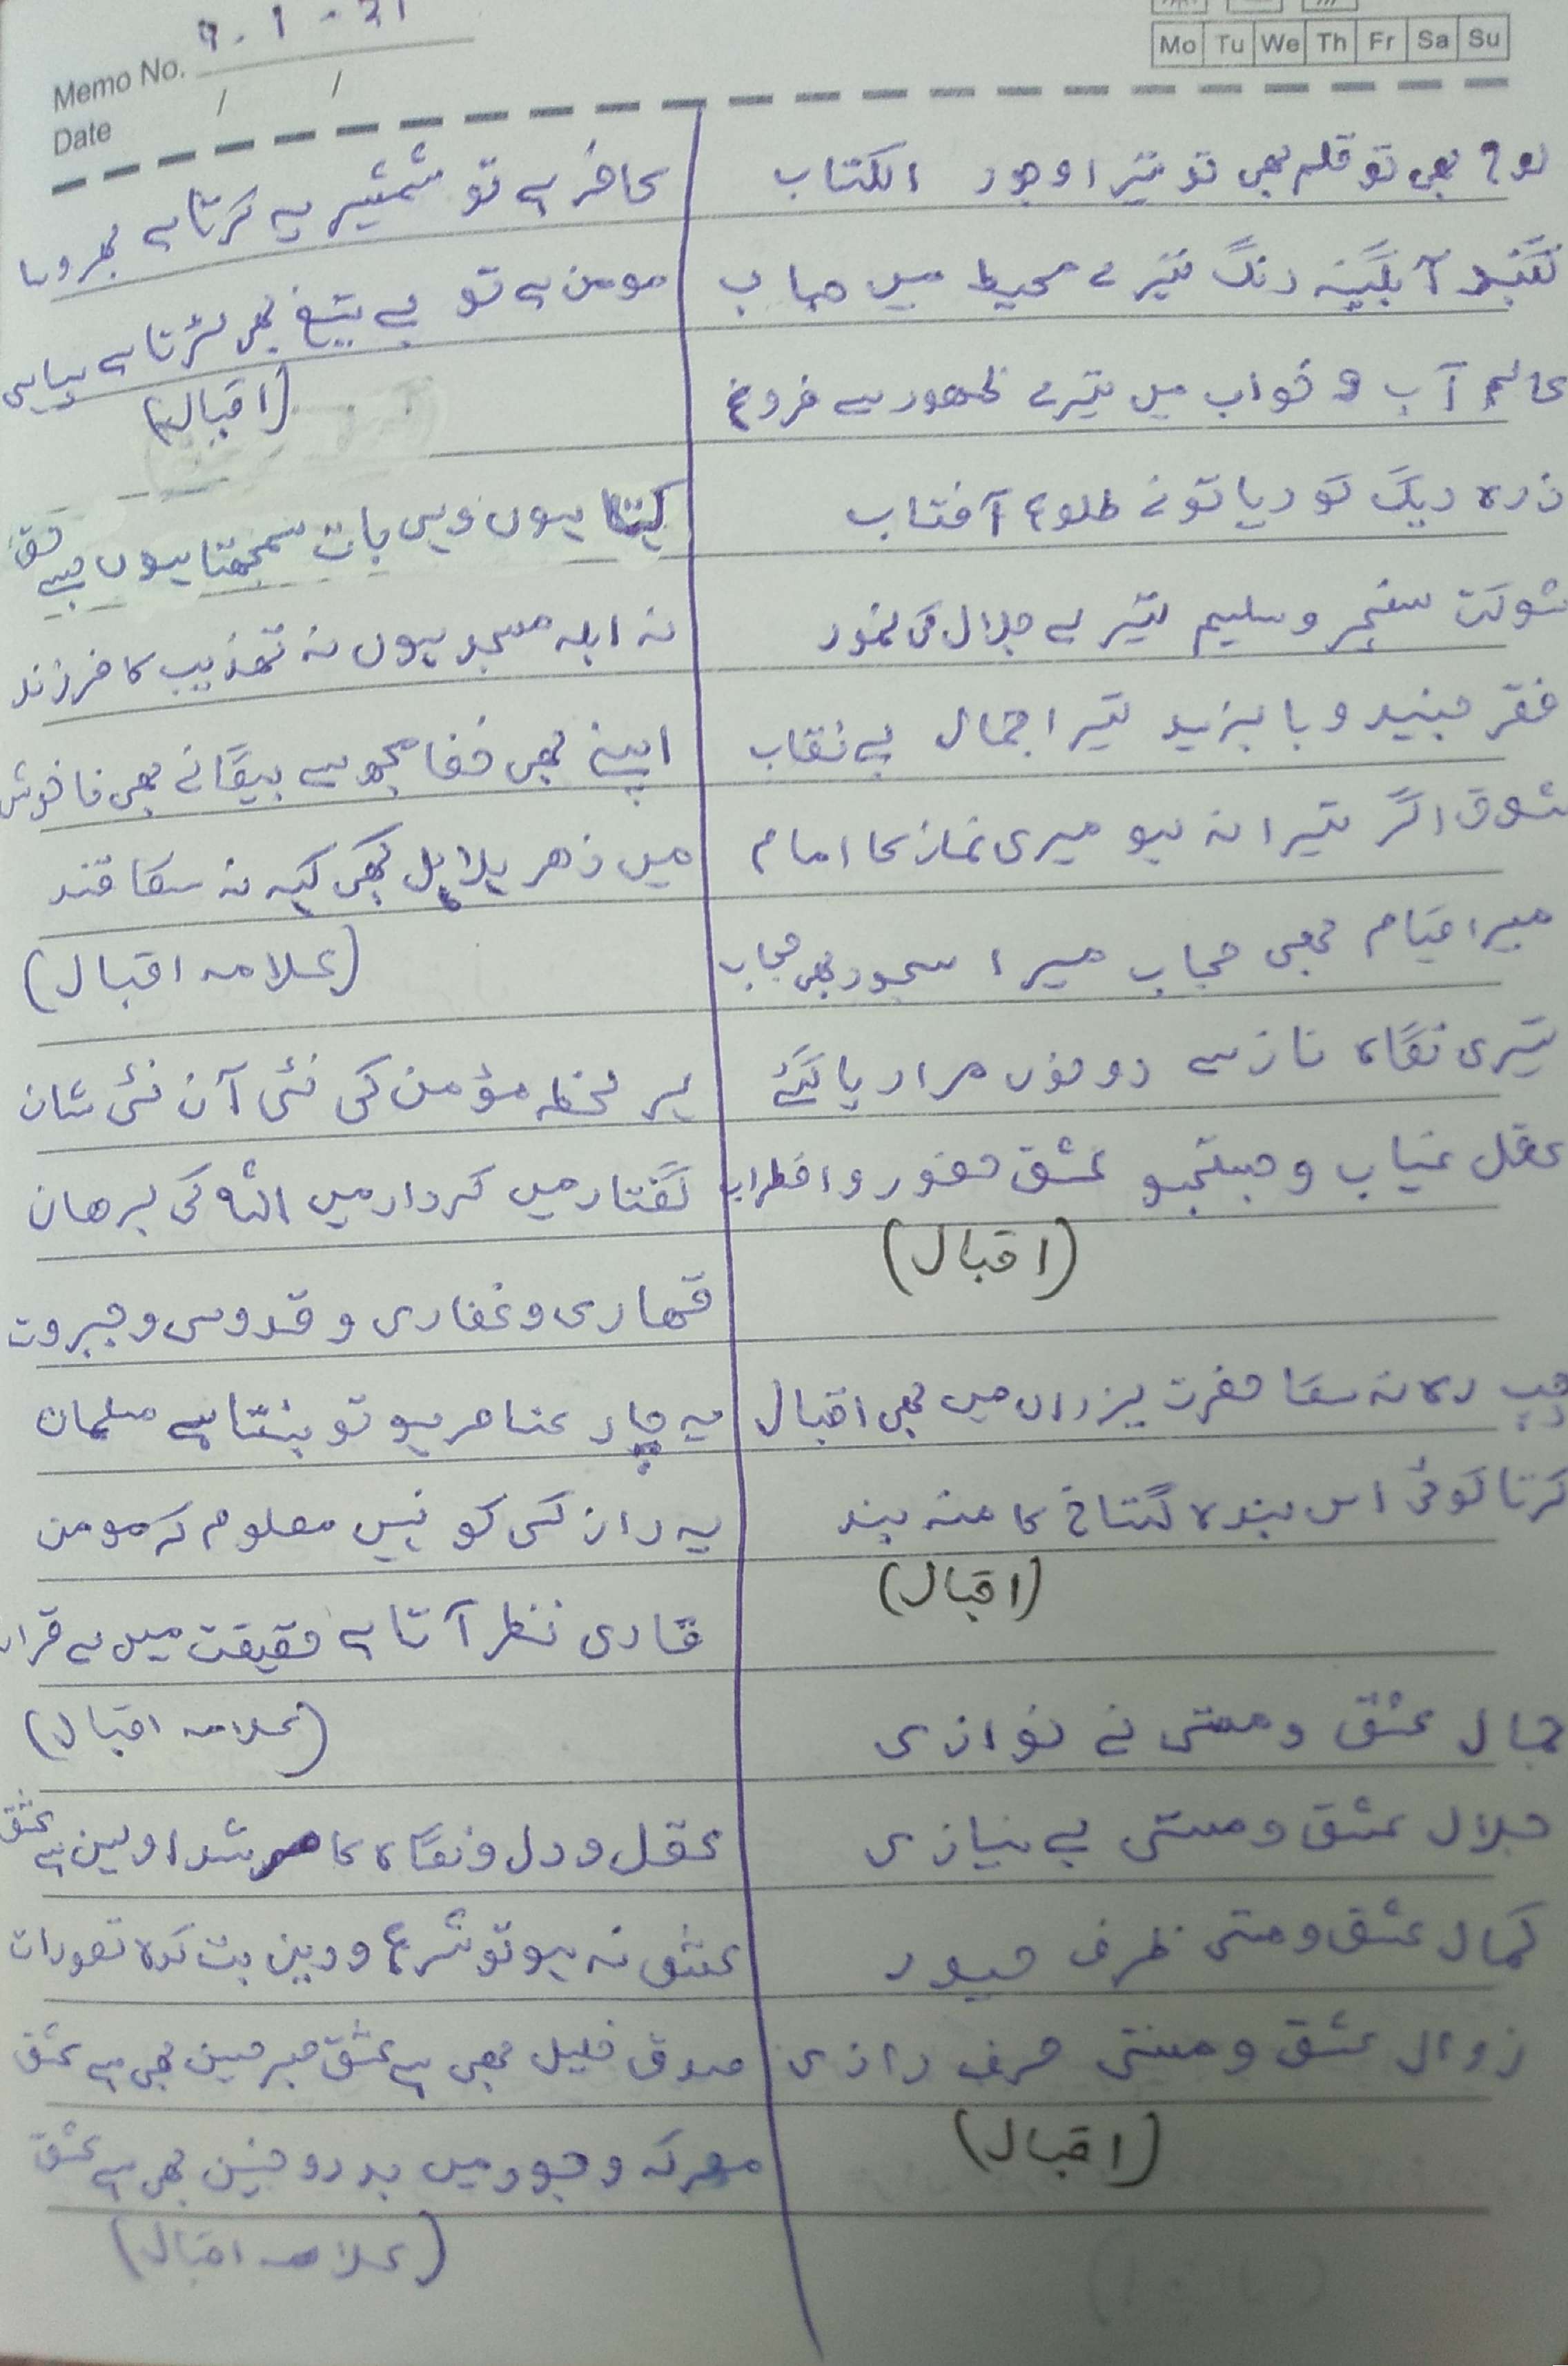 Memo No. 9-1-21
Date / /
Mo Tu We Th Fr Sa Su
لوح بھی تو قلم بھی تو تیرا وجود الکتاب
گنبد آبگینہ رنگ تیرے محیط میں حباب
عالم آب و خواب میں تیرے ظہور سے فروغ
ذرہ ریگ کو دیا تو نے طلوع آفتاب
شوکت سنجر و سلیم تیرے جلال کی نمود
فقر جنید و بایزید تیرا جمال بے نقاب
شوق اگر تیرا نہ ہو میری نماز کا امام
میرا قیام بھی حجاب میرا سجود بھی حجاب
تیری نگاہ ناز سے دونوں مراد پا گئے
عقل غیاب و جستجو عشق حضور و اضطراب
(اقبال)
چپ رہ نہ سکا حضرت یزداں میں بھی اقبال
کرتا کوئی اس بندہ گستاخ کا منہ بند
(اقبال)
جمال عشق و مستی نے نوازی
جلال عشق و مستی بے نیازی
کمال عشق و مستی ظرف حیدر
زوال عشق و مستی حرف رازی
(اقبال)
کافر ہے تو شمشیر پہ کرتا ہے بھروسا
مومن ہے تو بے تیغ بھی لڑتا ہے سپاہی
(اقبال)
کہتا ہوں وہی بات سمجھتا ہوں جسے حق
نہ ابلہ مسجد ہوں نہ تہذیب کا فرزند
اپنے بھی خفا مجھ سے بیگانے بھی ناخوش
میں زھر ہلاہل کبھی کہہ نہ سکا قند
(علامہ اقبال)
ہر لحظہ مؤمن کی نئی آن نئی شان
گفتار میں کردار میں اللہ کی برھان
قہاری و غفاری و قدوسی و جبروت
یہ چار عناصر ہو تو بنتا ہے مسلمان
یہ راز کسی کو نہیں معلوم کہ مومن
قاری نظر آتا ہے حقیقت میں ہے قرآن
(علامہ اقبال)
عقل و دل و نگاہ کا مرشد اولین ہے عشق
عشق نہ ہو تو شرع و دین بت کدہ تصورات
صدق خلیل بھی ہے عشق صبر حسین بھی ہے عشق
معرکہ وجود میں بدر و حنین بھی ہے عشق
(علامہ اقبال)